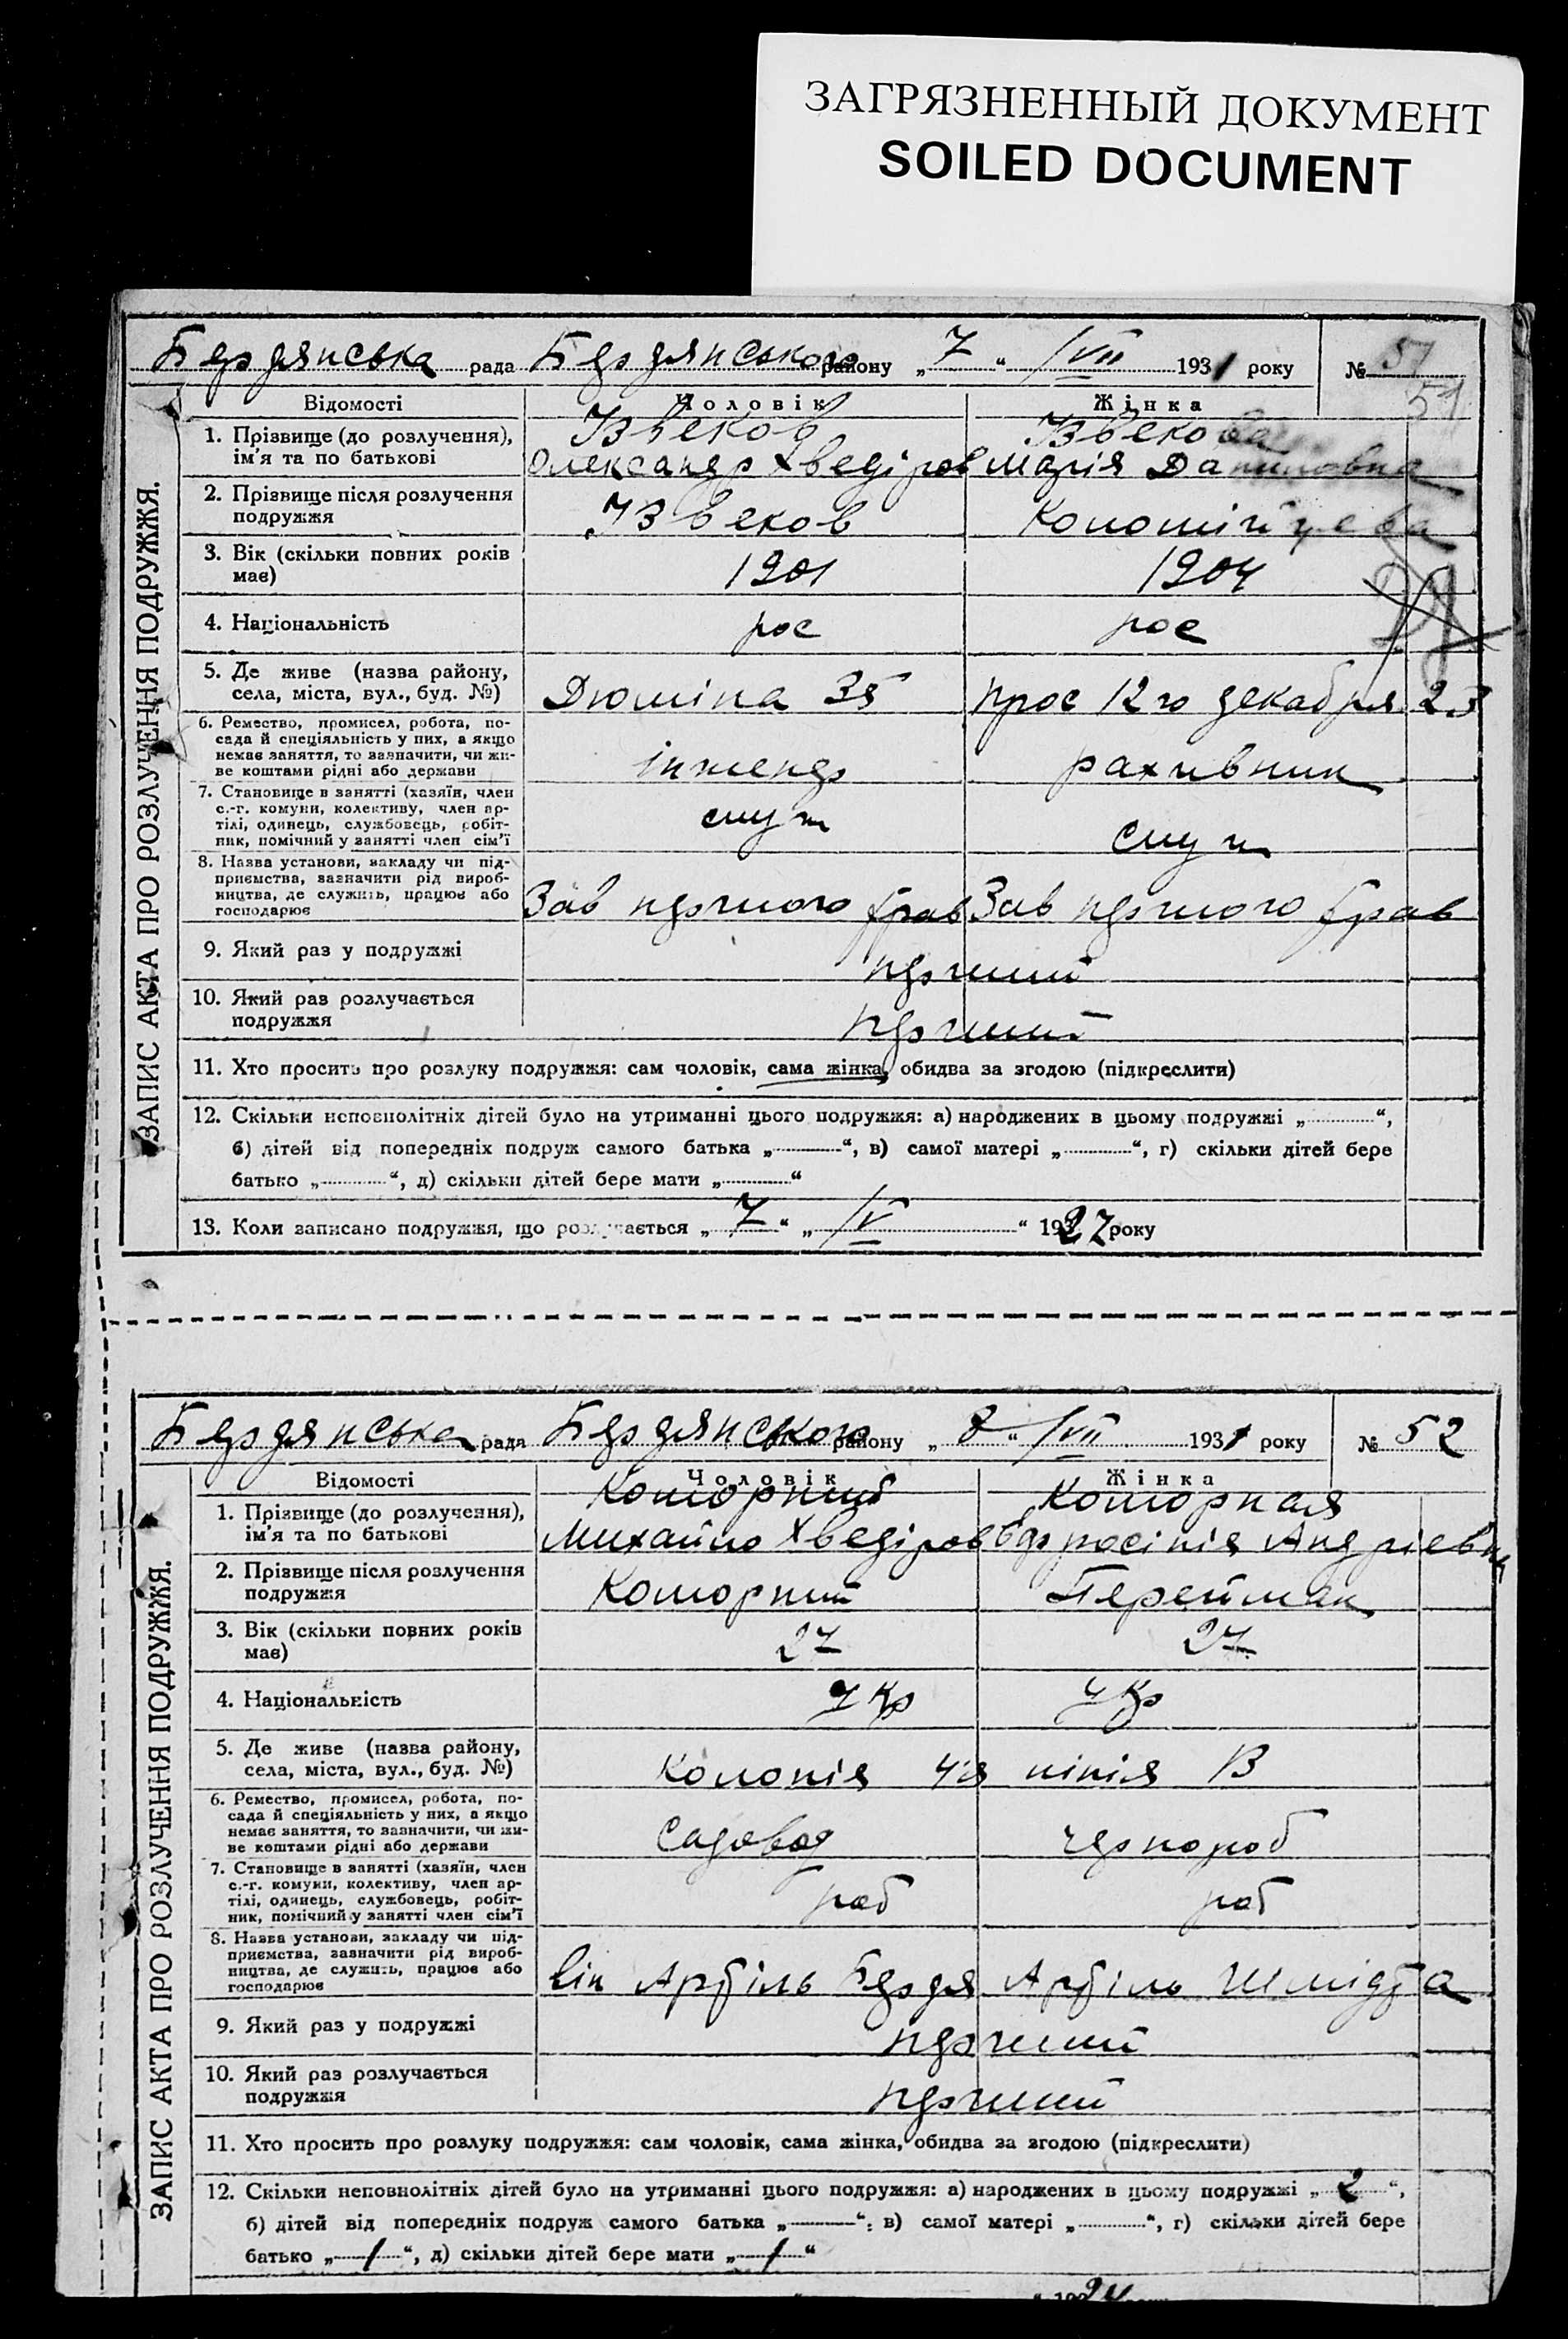 ЗАГРЯЗНЕННЫЙ ДОКУМЕНТ
SOILED DOCUMENT
Бердянська рада Бердянського району „7“ /VII 1931 року № 51
51
ЗАПИС АКТА ПРО РОЗЛУЧЕННЯ ПОДРУЖЖЯ.
Відомості Чоловік Жінка
1. Прізвище (до розлучення), Ізвеков Ізвекова
ім'я та по батькові Олександр Хведіров Марія Даниловна
2. Прізвище після розлучення
подружжя Ізвеков Коломійцева
3. Вік (скільки повних років
має) 1901 1904
4. Національність рос рос
5. Де живе (назва району,
села, міста, вул., буд. №) Дюміна 35 прос 12го декабря 23
6. Ремество, промисел, робота, по-
сада й спеціяльність у них, а якщо
немає заняття, то зазначити, чи жи-
ве коштами рідні або держави інженер рахівник
7. Становище в занятті (хазяїн, член
с.-г. комуни, колективу, член ар-
тілі, одинець, службовець, робіт-
ник, помічний у занятті член сім'ї служ служ
8. Назва установи, закладу чи під-
приємства, зазначити рід вироб-
ництва, де служить, працює або
господарює Зав першого трав Зав першого трав
9. Який раз у подружжі перший
10. Який раз розлучається
подружжя перший
11. Хто просить про розлуку подружжя: сам чоловік, сама жінка, обидва за згодою (підкреслити)
12. Скільки неповнолітніх дітей було на утриманні цього подружжя: а) народжених в цьому подружжі „ “,
б) дітей від попередніх подруж самого батька „ “, в) самої матері „ “, г) скільки дітей бере
батько „ “, д) скільки дітей бере мати „ “
13. Коли записано подружжя, що розлучається „7“ „/V“ 1927 року
Бердянська рада Бердянського району „8“ /VII 1931 року № 52
ЗАПИС АКТА ПРО РОЗЛУЧЕННЯ ПОДРУЖЖЯ.
Відомості Чоловік Жінка
1. Прізвище (до розлучення),
ім'я та по батькові Михайло Хведіров Єфросінія Андрієвна
2. Прізвище після розлучення
подружжя Перейман
3. Вік (скільки повних років
має) 27 27
4. Національність Укр Укр
5. Де живе (назва району,
села, міста, вул., буд. №) Колонія 4ія лінія 13
6. Ремество, промисел, робота, по-
сада й спеціяльність у них, а якщо
немає заняття, то зазначити, чи жи-
ве коштами рідні або держави садовод чернороб
7. Становище в занятті (хазяїн, член
с.-г. комуни, колективу, член ар-
тілі, одинець, службовець, робіт-
ник, помічний у занятті член сім'ї роб роб
8. Назва установи, закладу чи під-
приємства, зазначити рід вироб-
ництва, де служить, працює або
господарює він Артіль Бердя Артіль Шмідта
9. Який раз у подружжі перший
10. Який раз розлучається
подружжя перший
11. Хто просить про розлуку подружжя: сам чоловік, сама жінка, обидва за згодою (підкреслити)
12. Скільки неповнолітніх дітей було на утриманні цього подружжя: а) народжених в цьому подружжі „2“,
б) дітей від попередніх подруж самого батька „ “, в) самої матері „ “, г) скільки дітей бере
батько „1“, д) скільки дітей бере мати „1“